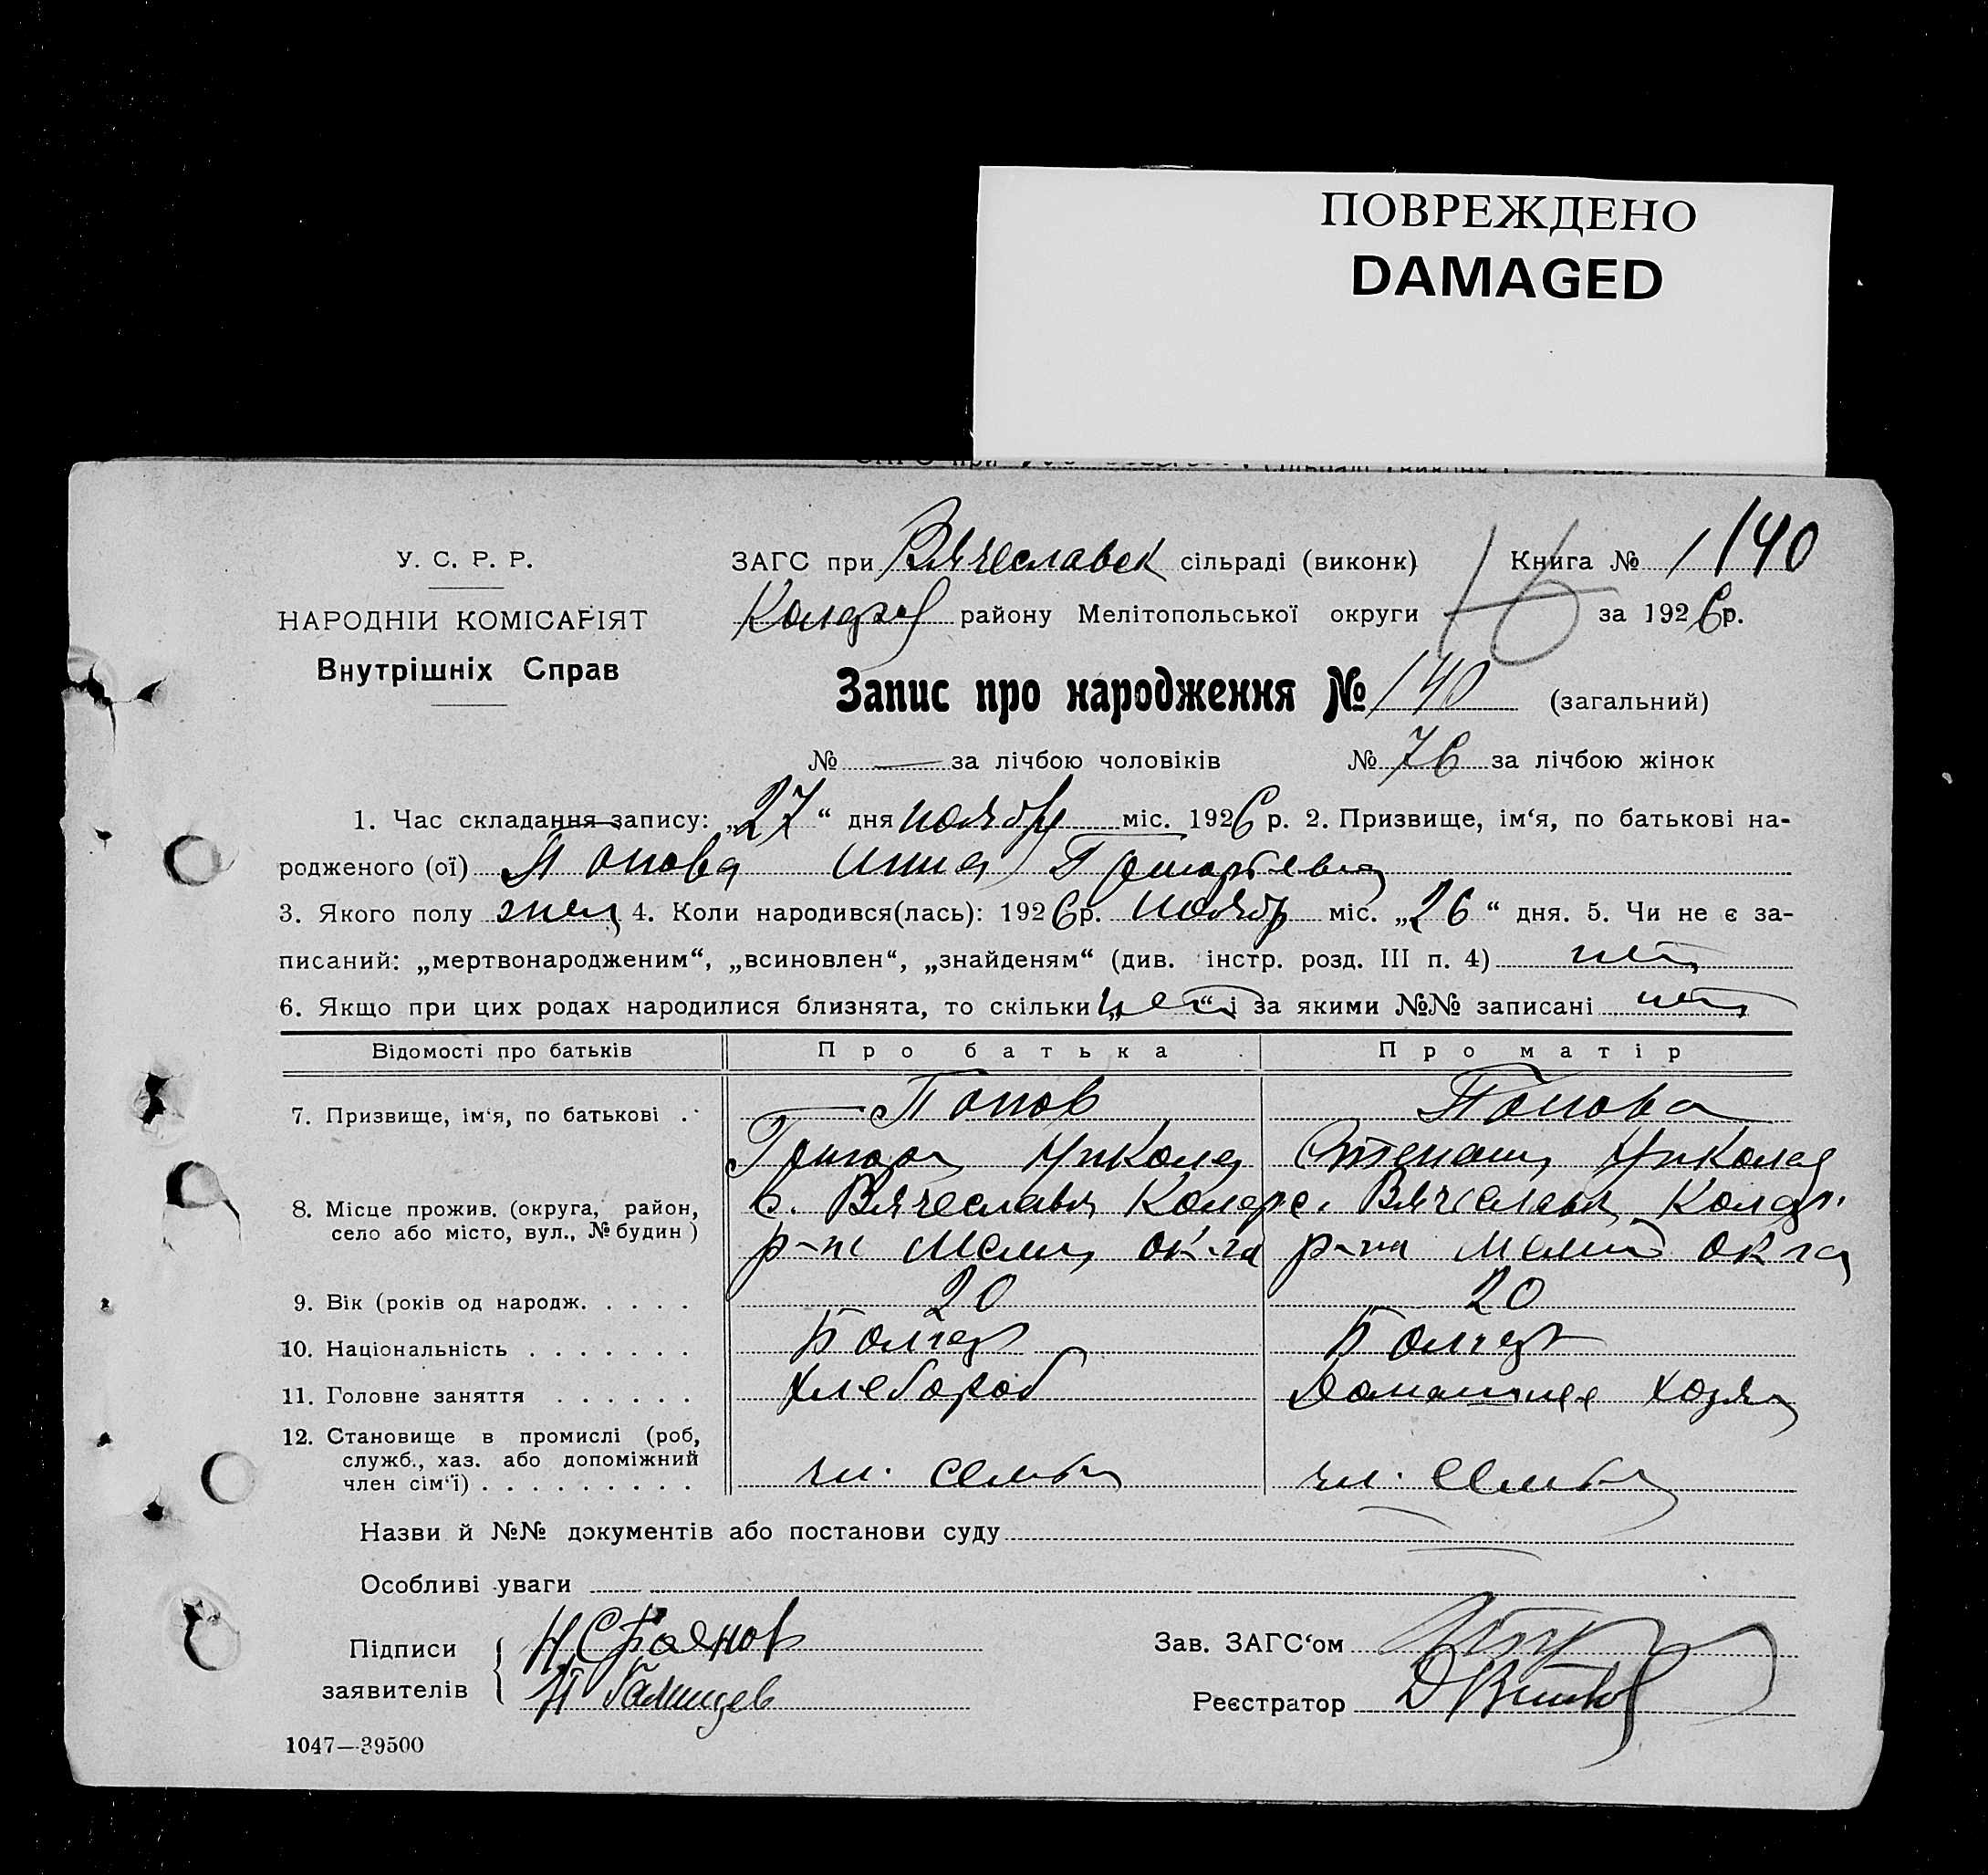 ПОВРЕЖДЕНО
DAMAGED
У. С. Р. Р.
НАРОДНІЙ КОМІСАРІЯТ
Внутрішніх Справ
ЗАГС при Вячеславск сільраді (виконк) Книга № 1 140
Коларов району Мелітопольської округи 16 за 1926 р.
Запис про народження № 140 (загальний)
№ — за лічбою чоловіків № 76 за лічбою жінок
1. Час складання запису: „27“ дня ноября міс. 1926 р. 2. Призвище, ім‘я, по батькові на-
родженого (ої) Попова Анна Григорьевна
3. Якого полу жен 4. Коли народився(лась): 1926 р. ноябр міс. „26“ дня. 5. Чи не є за-
писаний: „мертвонародженим“, „всиновлен“, „знайденям“ (див. інстр. розд. III п. 4) нет
6. Якщо при цих родах народилися близнята, то скільки „нет“ і за якими №№ записані нет
Відомості про батьків Про батька Про матір
7. Призвище, ім‘я, по батькові . Попов Попова
Григори Никола Степани Никола
8. Місце прожив. (округа, район,
село або місто, вул., № будин)
с. Вячеславка Колар с. Вячеславка Колар.
р-на Мели ок-га р-на Мелит окга
9. Вік (років од народж. . . . . 20 20
10. Національність . . . . . . . Болгар Болгар
11. Головне заняття . . . . . . Хлебороб Домашнее хозя
12. Становище в промислі (роб,
служб., хаз. або допоміжний
член сім‘ї) . . . . . . . . . чл. семьи чл. семьи
Назви й №№ документів або постанови суду
Особливі уваги
Підписи
заявителів
Зав. ЗАГС‘ом
Реєстратор
1047—39500